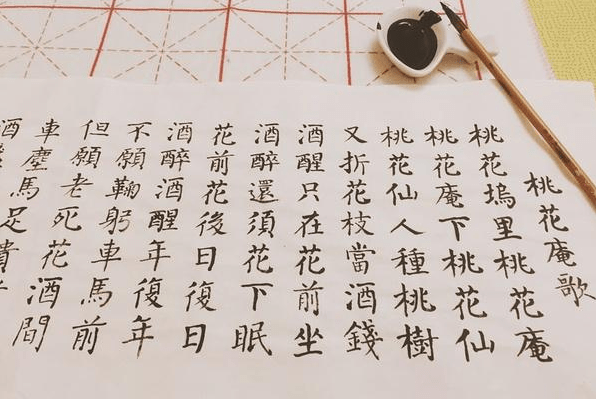 桃花庵歌
桃花塢里桃花庵
桃花庵下桃花仙
桃花仙人種桃樹
又折花枝當酒錢
酒醒只在花前坐
酒醉還須花下眠
花前花後日復日
酒醉酒醒年復年
不願鞠躬車馬前
但願老死花酒間
車塵馬足貴
酒